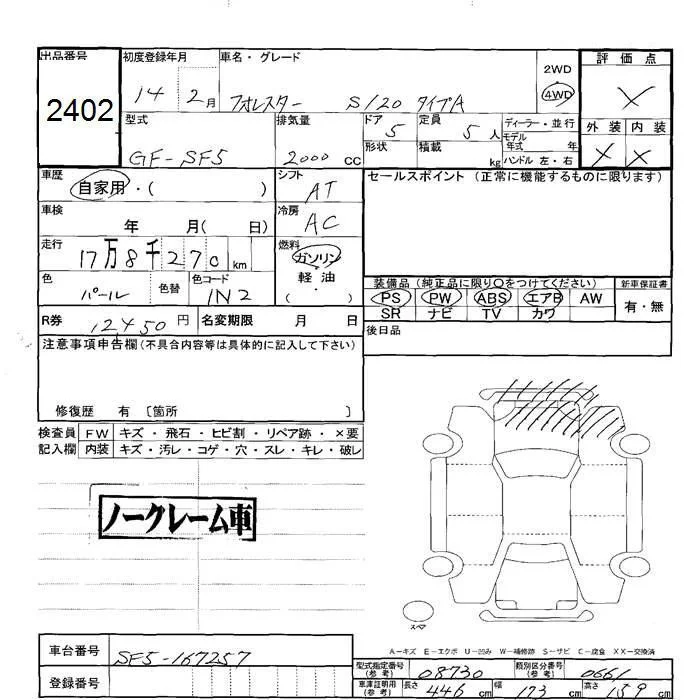 出品番号 初度登録年月 車名・グレード 評価点
2402 14 2月 フォレスター S/20 タイプA 2WD 4WD X
型式 排気量 ドア 定員 ディーラー・並行 外装 内装
GF-SF5 2000 cc 5 5人 モデル年式 年 X X
形状 積載 kg ハンドル 左・右
車歴 自家用・( ) シフト AT セールスポイント (正常に機能するものに限ります)
車検 年 月( 日) 冷房 AC
走行 17万8千270km 燃料 ガソリン 軽油 ・( )
色 パール 色替 色コード 1N2
装備品 (純正品に限り○をつけてください) 新車保証書
PS PW ABS エアB AW 有・無
SR ナビ TV カワ
R券 12450円 名変期限 月 日 後日品
注意事項申告欄(不具合内容等は具体的に記入して下さい)
修復歴 有 〔箇所 〕
検査員 FW キズ・飛石・ヒビ割・リペア跡・×要
記入欄 内装 キズ・汚レ・コゲ・穴・スレ・キレ・破レ
ノークレーム車
スペア
A-キズ E-エクボ U-凹み W-補修跡 S-サビ C-腐食 XX-交換済
車台番号 SF5-167257
登録番号
型式指定番号(参考) 08730 類別区分番号(参考) 0661
車庫証明用(参考) 長さ 446 cm 幅 173 cm 高さ 159 cm